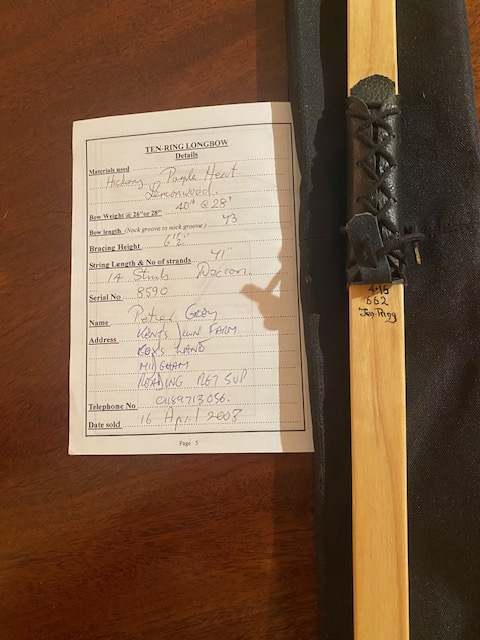 TEN-RING LONGBOW
Details
Materials used Hickory Purple Heart
Lemonwood.
Bow Weight @ 26"or 28" 40lb @ 28"
Bow length (Nock groove to nock groove) 73
Bracing Height 6 1/2"
String Length & No of strands 71"
14 Strands Dacron
Serial No 8590
Name Gray
Address FARM
MIDGHAM
READING RG7 5UP
Telephone No
Date sold 16 April 2008
Page 5
662
Ten-Ring